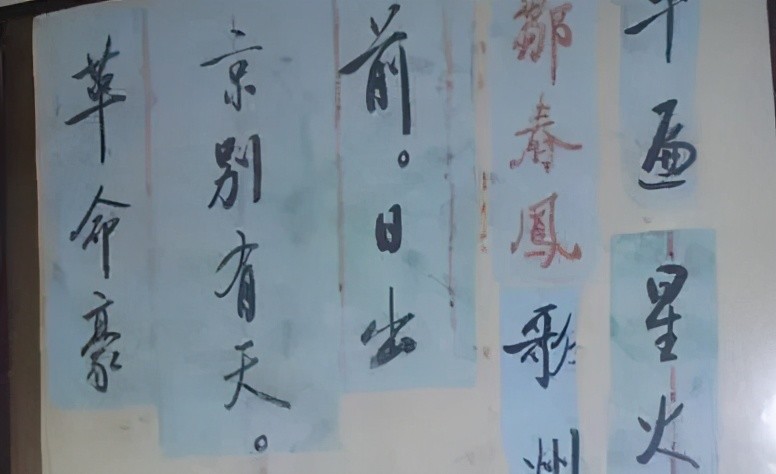 遍星火
鄒春鳳歌
前。日出
京别有天。
革命豪